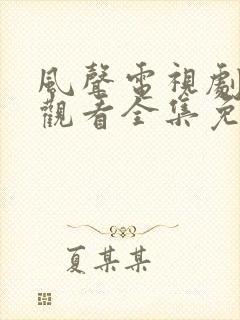 風聲電視劇
觀看全集免
夏某某